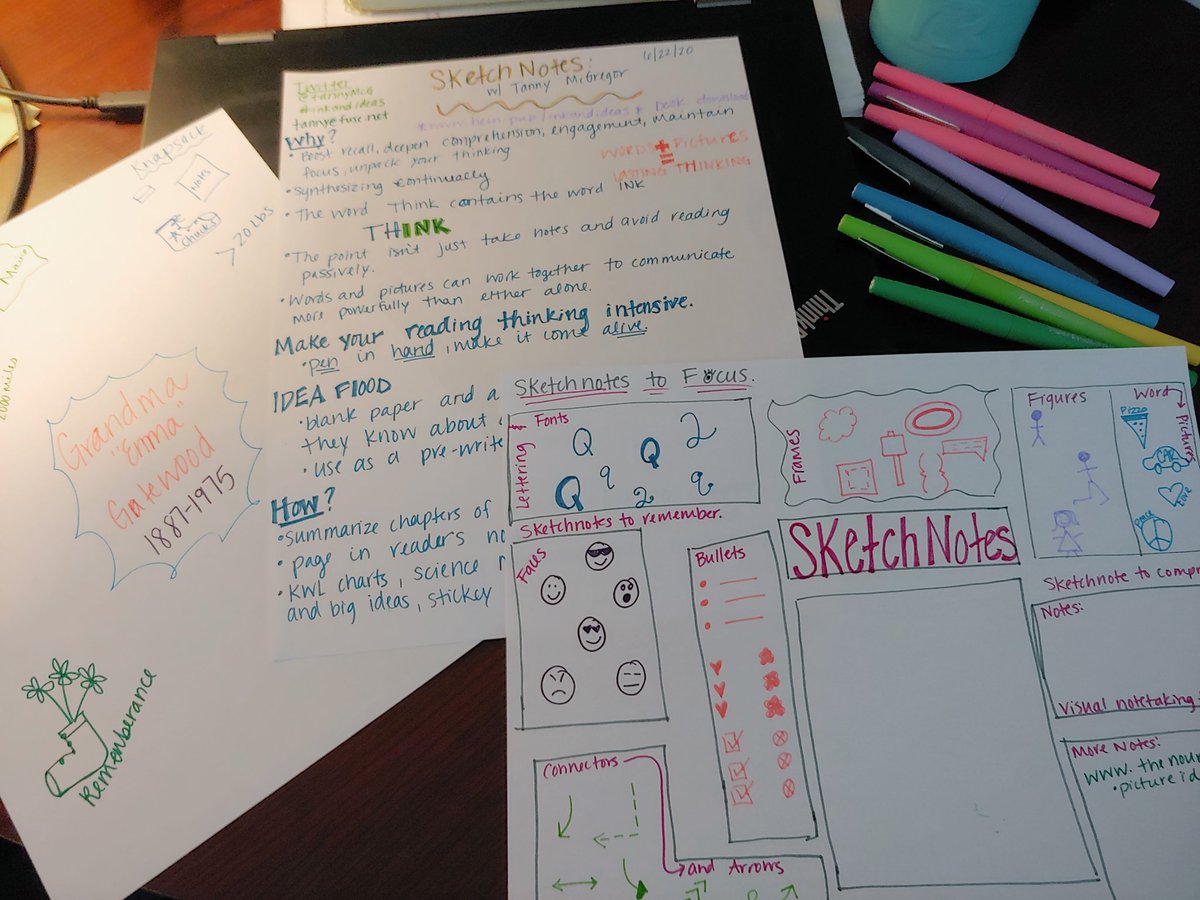 Knapsack
NOTES
Chucks
7 20 lbs
2000 miles
Grandma
"Emma"
Gatewood
1887-1975
Rememberance
Twitter
@TannyMcG
#inkandideas
tanny@fuse.net
SketchNotes:
w/ Tanny McGregor
6/22/20
*www.hein.pub/inkandideas * book download
Why?
• Boost recall, deepen comprehension, engagement, maintain
focus, unpack your thinking
WORDS + Pictures
=
LASTING THINKING
• Synthesizing continually
• The word Think contains the word INK
THINK
• The point isn't just take notes and avoid reading
passively.
• Words and pictures can work together to communicate
more powerfully than either alone.
Make your reading thinking intensive.
• pen in hand, make it come alive.
IDEA FlOOD
• blank paper and a
they know about
• use as a pre-write
How?
• Summarize chapters of
• page in reader's no
• KWL charts, science
and big ideas, stickey
ThinkP
Sketchnotes to Focus.
Lettering
Fonts
Q Q 2
Q q 2 q
Frames
Figures
Word
Pictures
Pizza
CAR
Love
Peace
Sketchnotes to remember.
SKetchNotes
Faces
Bullets
Sketchnote to compr
Notes:
Visual notetaking
More Notes:
www.thenour
• picture id
Connectors
and Arrows